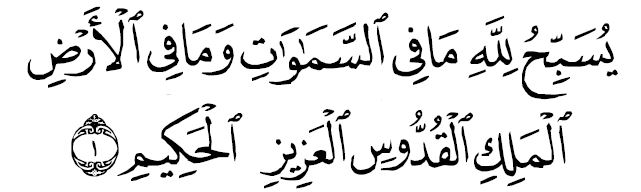 يُسَبِّحُ لِلَّهِ مَا فِي ٱلسَّمَٰوَٰتِ وَمَا فِي ٱلْأَرْضِ
ٱلْمَلِكِ ٱلْقُدُّوسِ ٱلْعَزِيزِ ٱلْحَكِيمِ ١